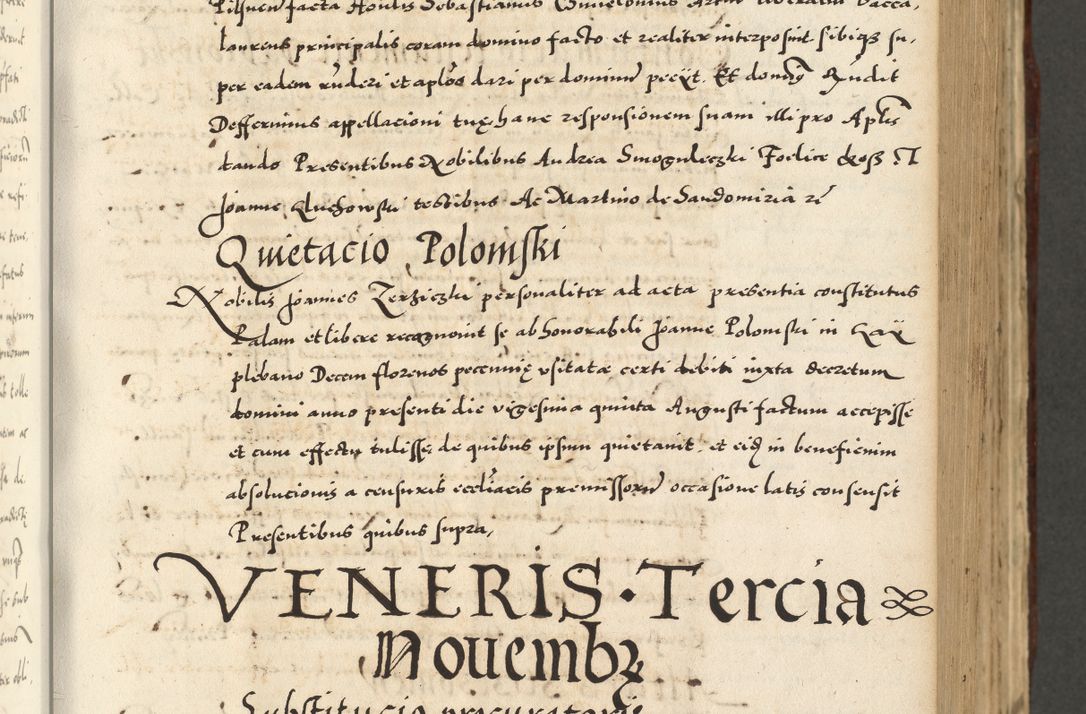 Pilsnen facta Honlis Sebastianus Artiu liberaliu bacca,
laureus principalis coram domino facto et realiter interposuit sibiqz su,
per eadem rnderi et aplos dari per dominu peeyt. Et domng Rndit
Defferimus appellacioni tuę hanc responsionem suam illi pro Aplis
dando Presentibus Nobilibus Andrea Smoguleczki Foelice
Joanne Kluchowski testibus Ac Martino de Sandomiria
Quietacio Polomski
Nobilis Joannes Zerziczki personaliter ad acta presentia constitutus
Palam et libere recognouit se ab honorabili Joanne Polomski in
plebano Decem florenos pecunię vsitatæ certi debiti iuxta decretum
domini anno presenti die vigesima quinta Augusti factum accepisse
et cum effectu tulisse, de quibus ipsum quietauit, et eid in beneficium
absolucionis a censuris eccliacis premissoru occasione latis consensit
Presentibus quibus supra,
VENERIS · Tercia
Nouembrꝫ
Substitucio procuratoris